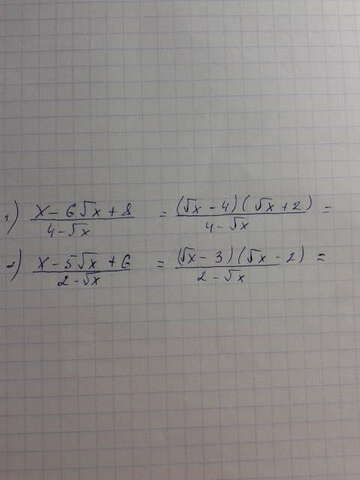 1) (x - 6√x + 8)/(4 - √x) = ((√x - 4)(√x + 2))/(4 - √x) =
2) (x - 5√x + 6)/(2 - √x) = ((√x - 3)(√x - 2))/(2 - √x) =